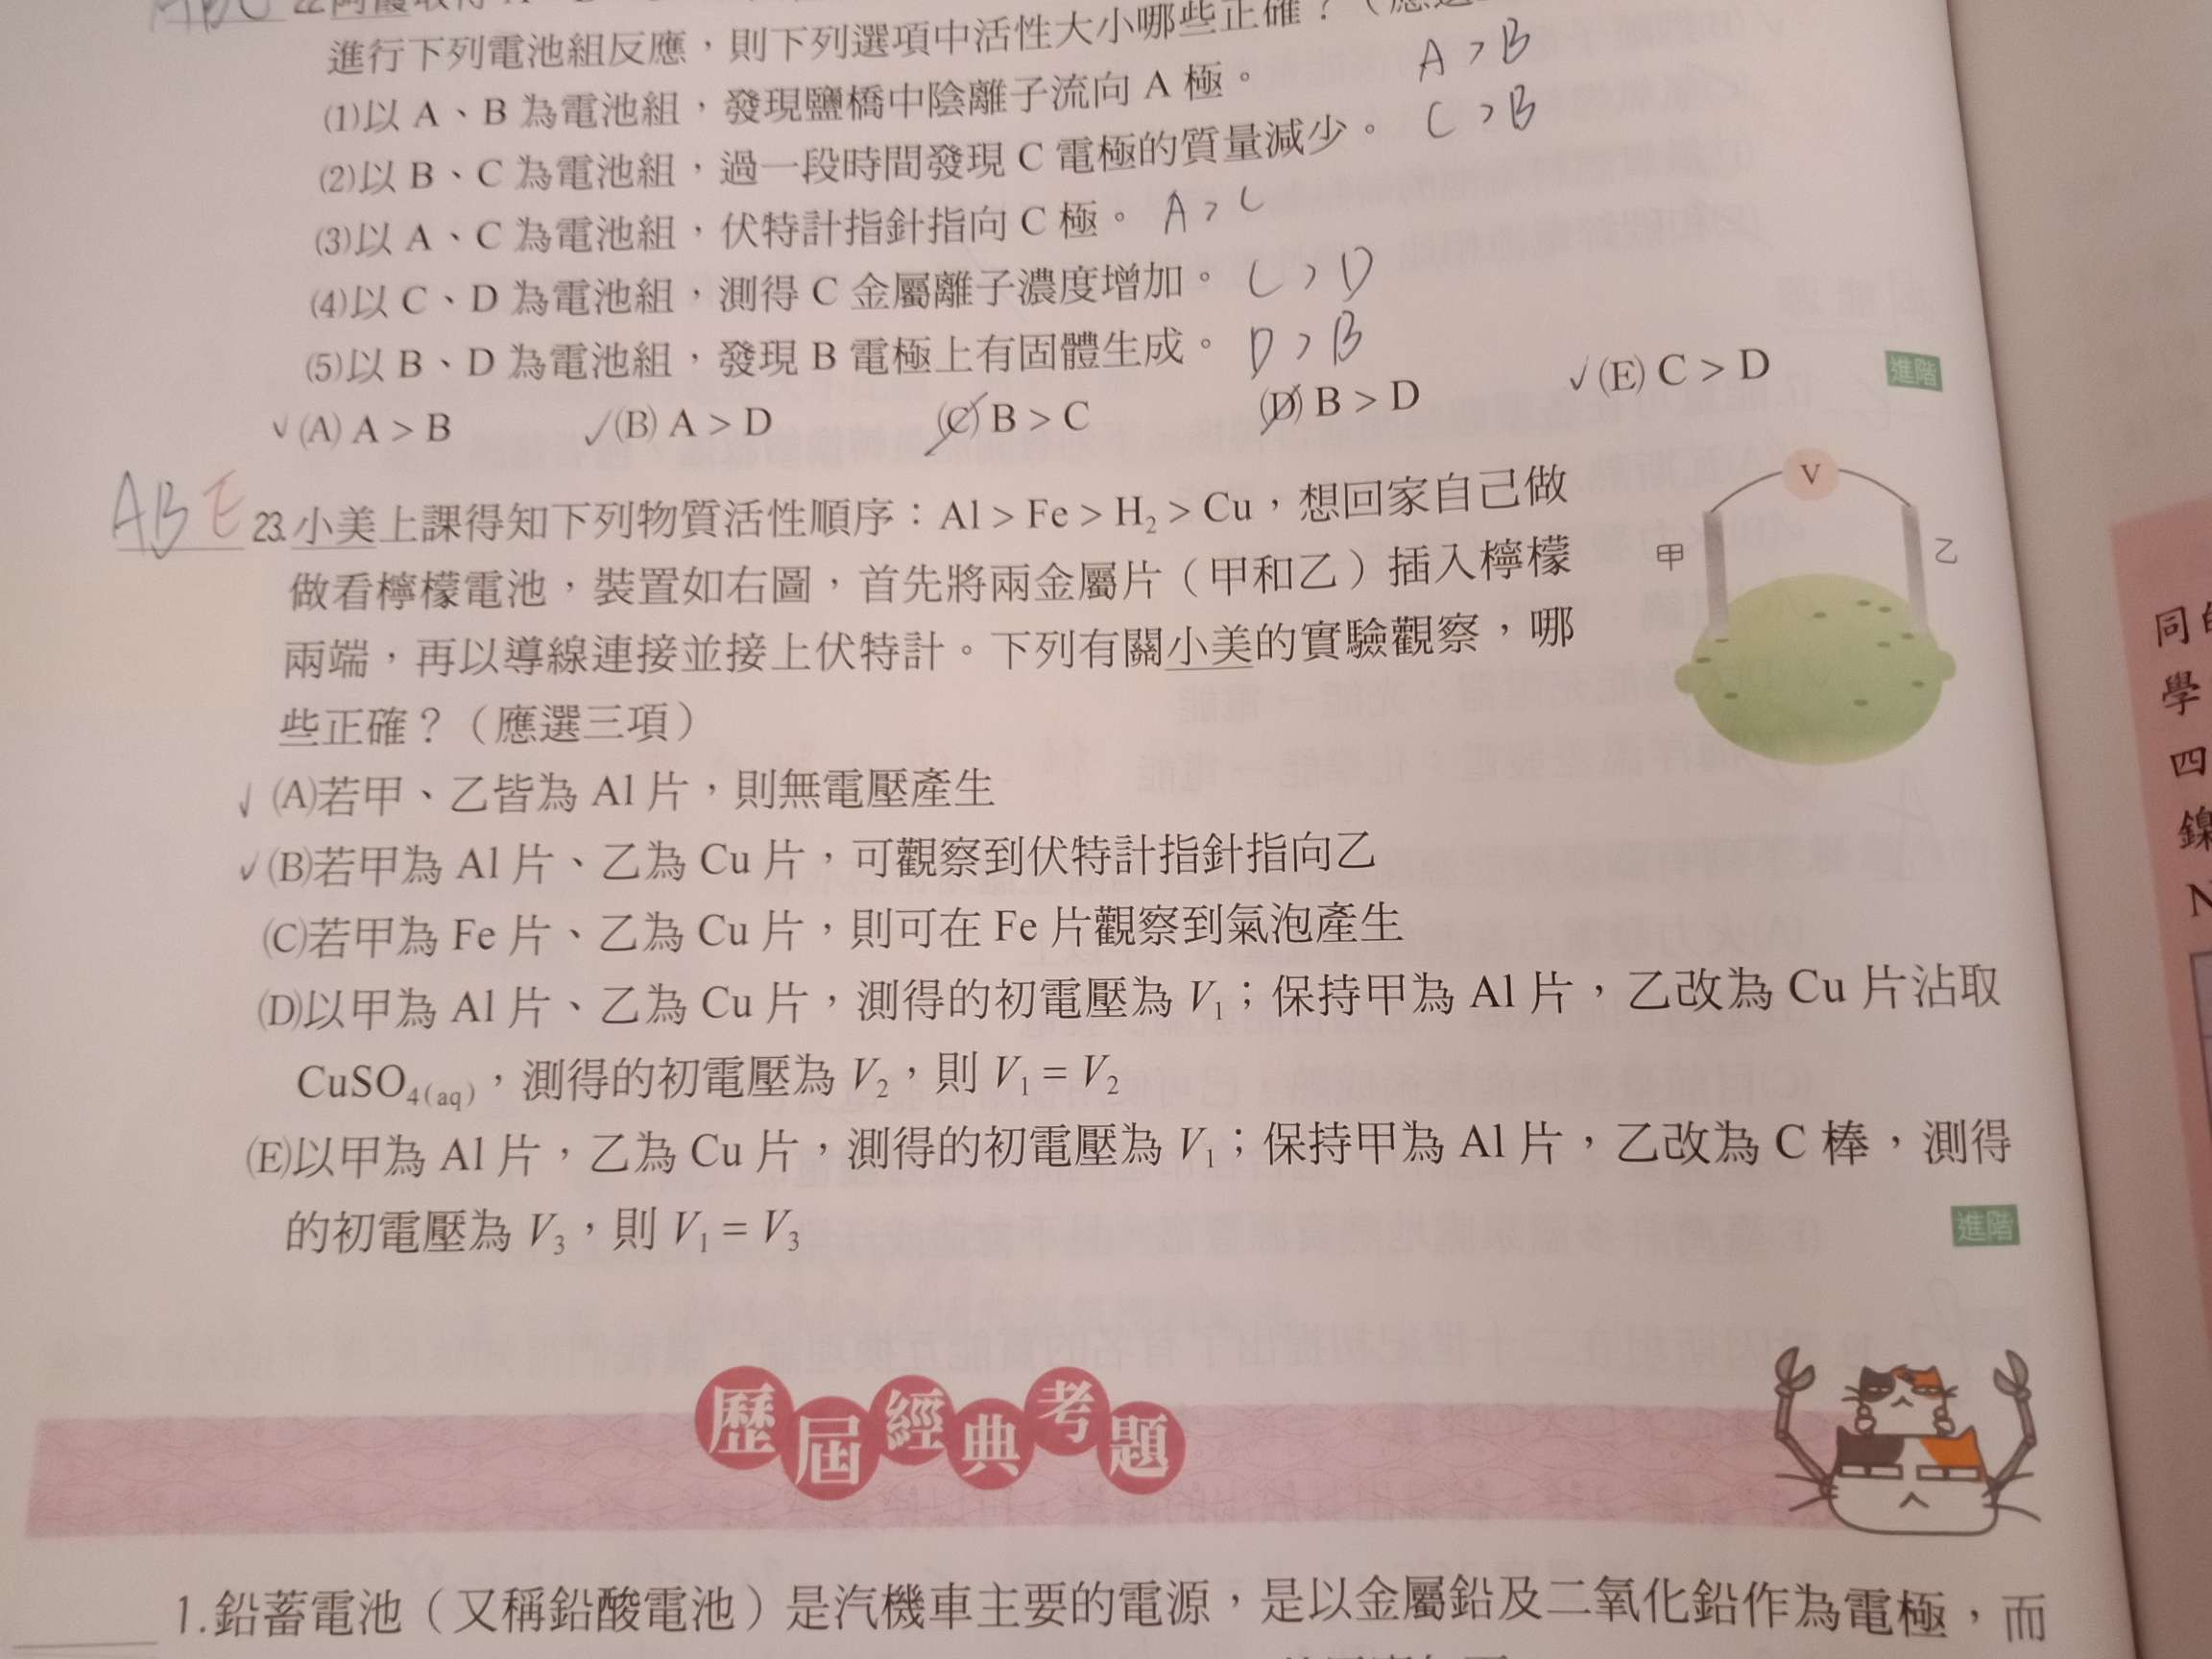 進行下列電池組反應，則下列選項中活性大小哪些正確？（應選
(1)以 A、B 為電池組，發現鹽橋中陰離子流向 A 極。 A > B
(2)以 B、C 為電池組，過一段時間發現 C 電極的質量減少。 C > B
(3)以 A、C 為電池組，伏特計指針指向 C 極。 A > C
(4)以 C、D 為電池組，測得 C 金屬離子濃度增加。 C > D
(5)以 B、D 為電池組，發現 B 電極上有固體生成。 D > B
✓(A) A > B ✓(B) A > D (C) B > C (D) B > D ✓(E) C > D 進階
ABE 23.小美上課得知下列物質活性順序：Al > Fe > H₂ > Cu，想回家自己做
做看檸檬電池，裝置如右圖，首先將兩金屬片（甲和乙）插入檸檬
兩端，再以導線連接並接上伏特計。下列有關小美的實驗觀察，哪
些正確？（應選三項）
V
甲
乙
✓(A)若甲、乙皆為 Al 片，則無電壓產生
✓(B)若甲為 Al 片、乙為 Cu 片，可觀察到伏特計指針指向乙
(C)若甲為 Fe 片、乙為 Cu 片，則可在 Fe 片觀察到氣泡產生
(D)以甲為 Al 片、乙為 Cu 片，測得的初電壓為 V₁；保持甲為 Al 片，乙改為 Cu 片沾取
CuSO₄(aq)，測得的初電壓為 V₂，則 V₁ = V₂
(E)以甲為 Al 片，乙為 Cu 片，測得的初電壓為 V₁；保持甲為 Al 片，乙改為 C 棒，測得
的初電壓為 V₃，則 V₁ = V₃
進階
歷屆經典考題
1.鉛蓄電池（又稱鉛酸電池）是汽機車主要的電源，是以金屬鉛及二氧化鉛作為電極，而
同
學
四
鎳
N